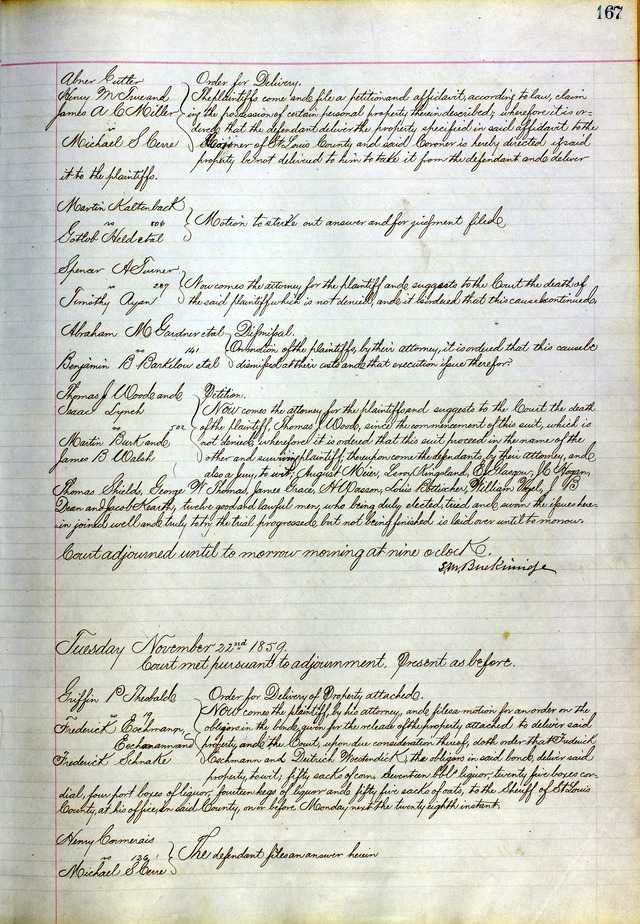 167
Abner Cutler
Henry M Tweed and
James A C Miller
vs
Michael S Cerre
Order for Delivery.
The plaintiffs come and file a petition and affidavit, according to law, claim
ing the possession of certain personal property therein described; wherefore it is or-
dered that the defendant deliver the property specified in said affidavit to the
Coroner of St Louis County and said Coroner is hereby directed if said
property be not delivered to him to take it from the defendant and deliver
it to the plaintiffs.
Martin Kaltenback
vs 506
Gotlob Held et al
Motion to strike out answer and for judgment filed
Spencer A Turner
vs 297
Timothy Ryan
Now comes the attorney for the plaintiff and suggests to the Court the death of
the said plaintiff which is not denied, and it is ordered that this cause be continued.
Abraham M Gardner et al
vs 141
Benjamin B Barklow et al
Dismissal.
On motion of the plaintiffs, by their attorney, it is ordered that this cause be
dismissed at their costs and that execution issue therefor.
Thomas J Wood and
Isaac Lynch
vs 502
Martin Burk and
James B Walsh
Petition.
Now comes the attorney for the plaintiffs and suggests to the Court the death
of the plaintiff, Thomas J Wood, since the commencement of this suit, which is
not denied, wherefore it is ordered that this suit proceed in the name of the
other and surviving plaintiff thereupon come the defendants by their attorney, and
also a jury, to wit, August Meier, Leon Kingsland, E Glasgow, M Hogan,
Thomas Shields, George W Thomas, James Grace, A Wasson, Louis Botticher, William Vogel, J B
Dean and Jacob Heareth, twelve good and lawful men, who being duly elected, tried and sworn the issues here-
in joined well and truly to try the trial progressed but not being finished is laid over until to morrow.
Court adjourned until to morrow morning at nine oclock.
S. M. Breckinridge
Tuesday November 22nd 1859.
Court met pursuant to adjournment. Present as before.
Griffin P Theobald
vs 7
Frederick Eschmann
Eschmann and
Frederick Schnake
Order for Delivery of Property attached.
Now comes the plaintiff, by his attorney, and files a motion for an order on the
obligors in the bond, given for the release of the property attached to deliver said
property, and the Court, upon due consideration thereof, doth order that Fredrick
Eschmann and Dietrich Woestendick, the obligors in said bond, deliver said
property, to wit; fifty sacks of corn, seventeen bbls liquor, twenty five boxes cor-
dial, four port boxes of liquor, fourteen kegs of liquor and fifty five sacks of oats, to the Sheriff of St Louis
County, at his office, in said County, on or before Monday next the twenty eighth instant.
Henry Cormerais
vs 129
Michael S Cerre
The defendant files an answer herein